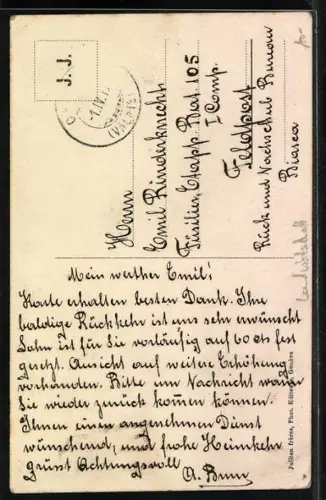 J. J.
1. IV. 1
(VALAIS)
Herrn
Emil Rinderknecht
Füsilier, Etapp. Bat 105
I Comp.
Feldpost
Rück und Nachschub Bureau
Biasca
Mein werther Emil!
Karte erhalten besten Dank. Ihre
baldige Rückkehr ist uns sehr erwünscht
Lohn ist für Sie vorläufig auf 60 cts fest
gesetzt. Aussicht auf weitere Erhöhung
vorhanden. Bitte um Nachricht wann
Sie wieder zurück kommen können.
Ihnen einen angenehmen Dienst
wünschend, und frohe Heimkehr
grüsst Achtungsvoll
A. Brun
Jullien frères, Phot. Editeurs, Genève
Landwirtschaft
10-